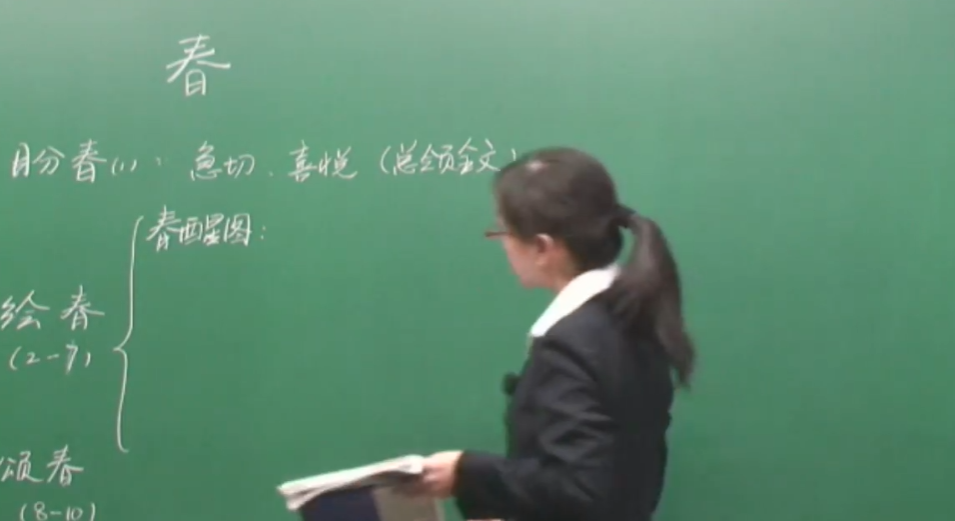 春
盼春(1)：急切、喜悦（总领全文）
春醒图：
绘春
(2-7)
颂春
(8-10)